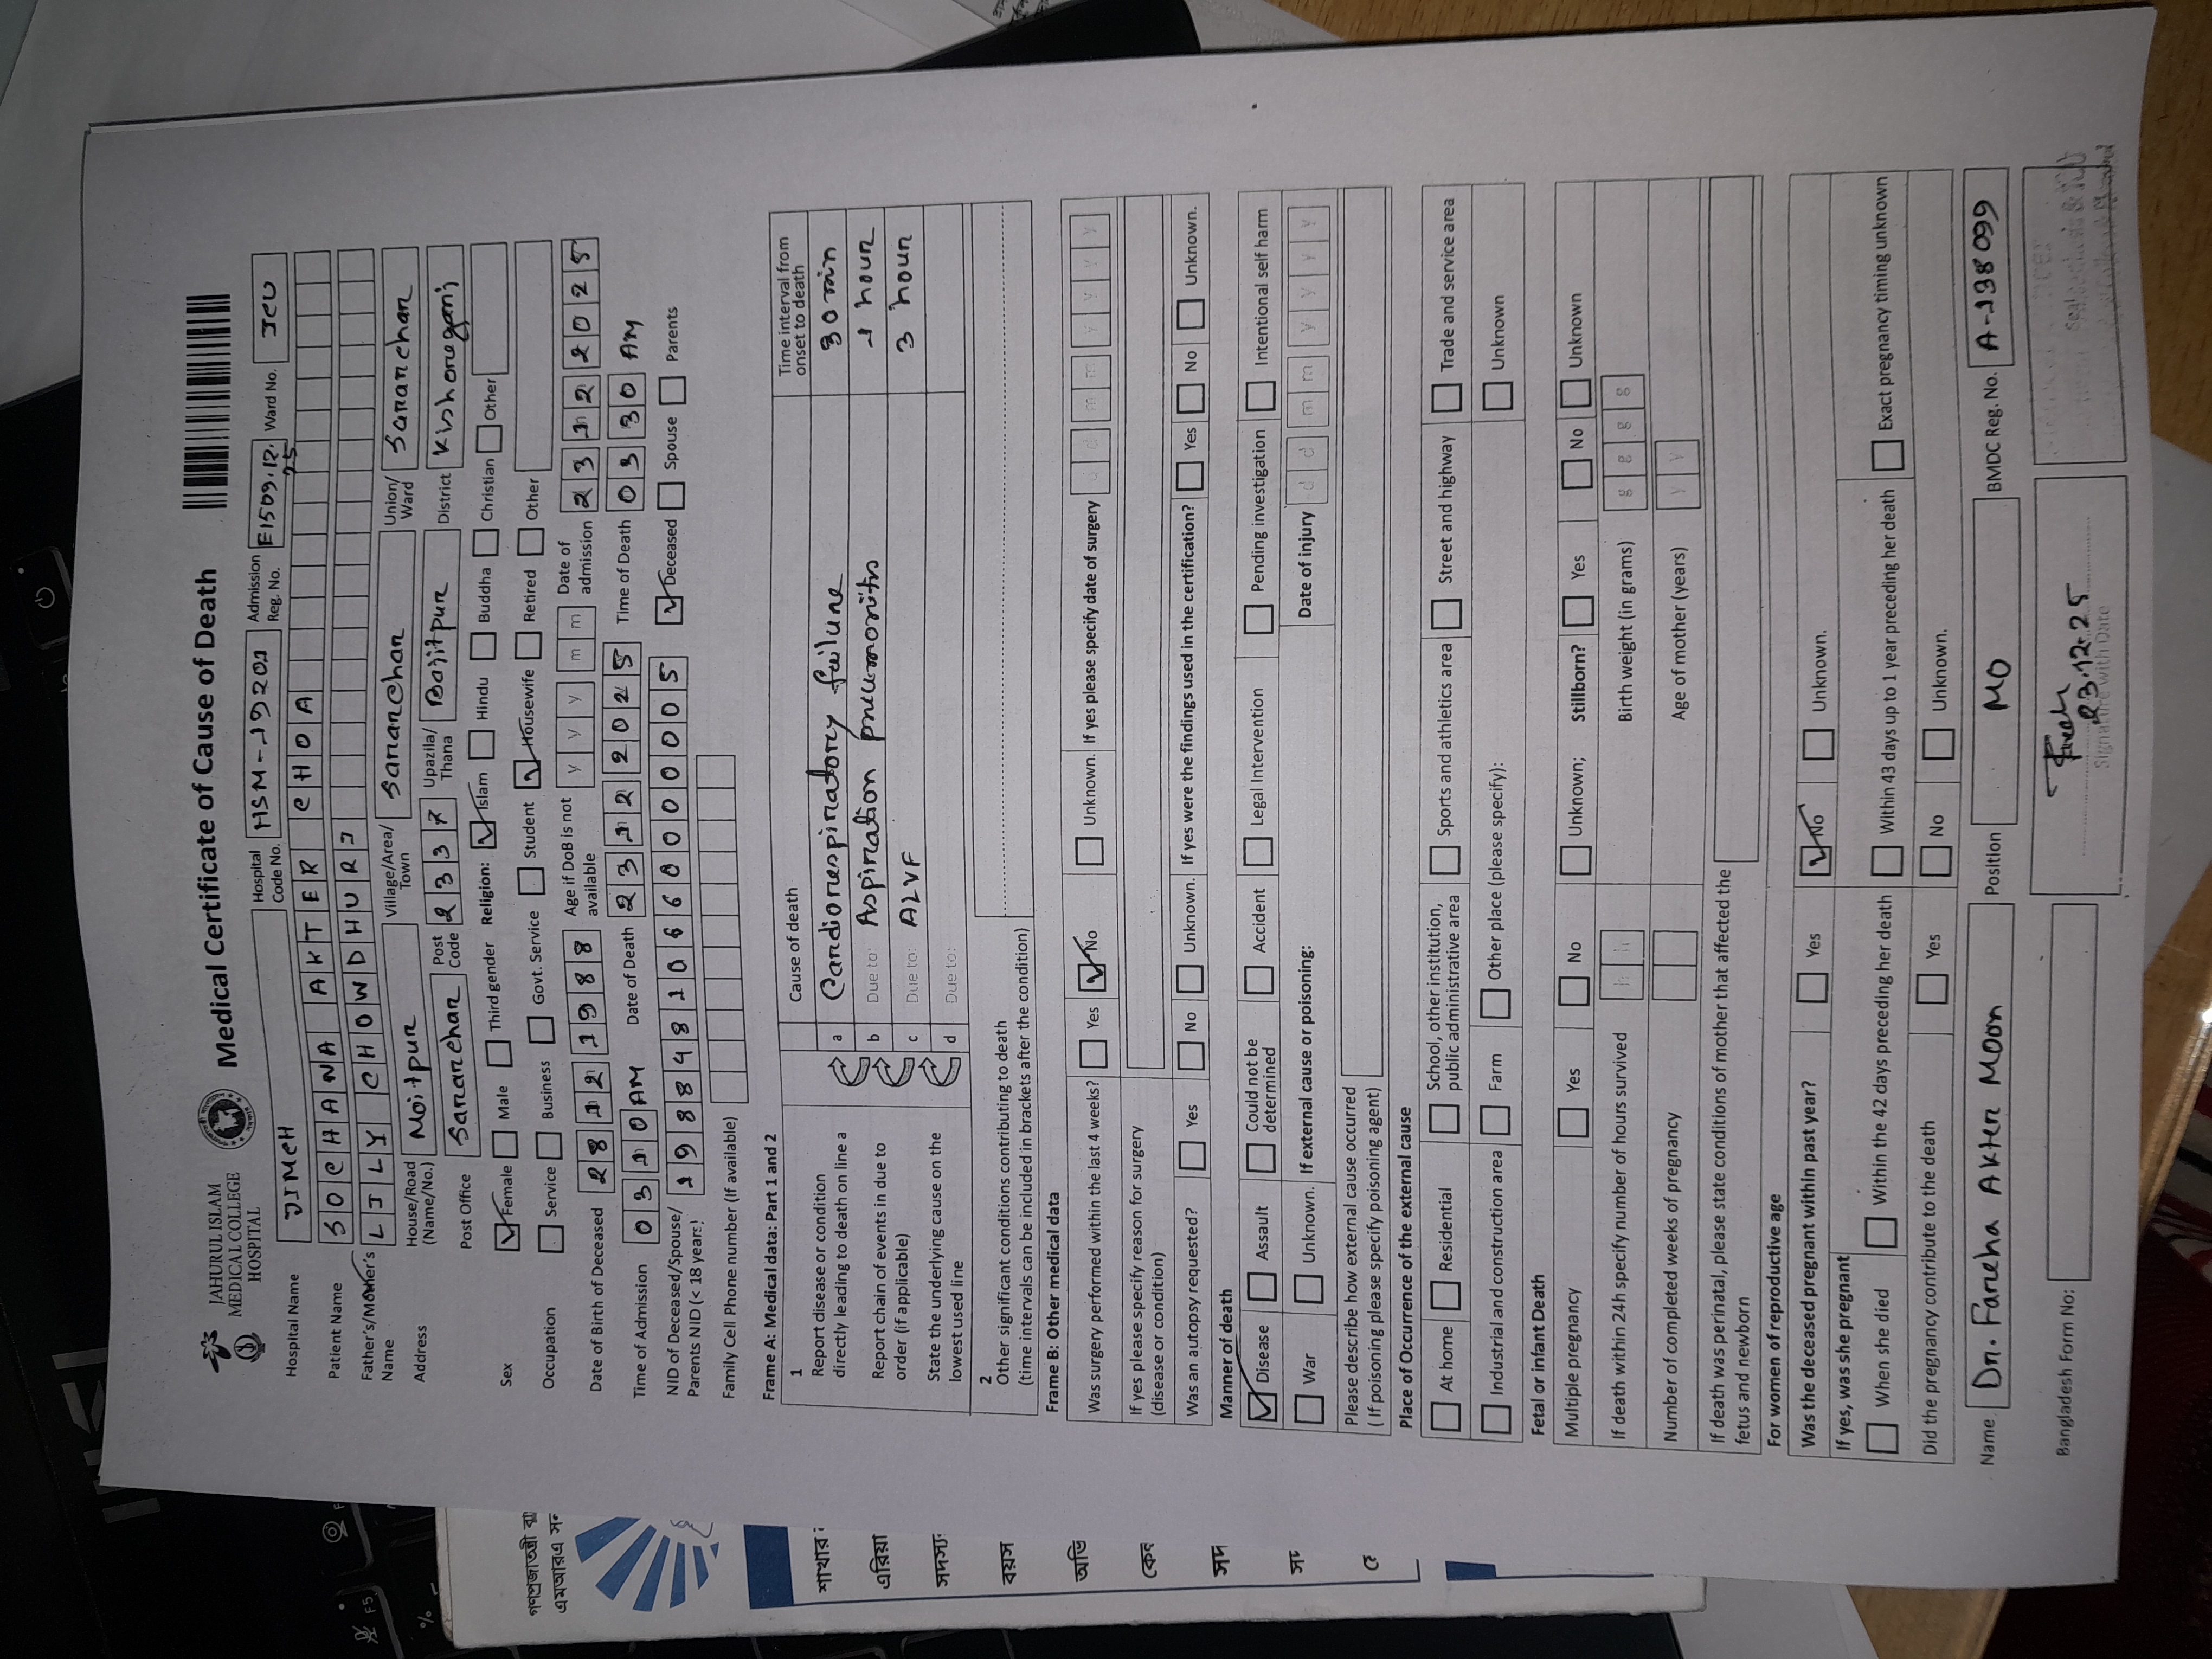 JAHURUL ISLAM
MEDICAL COLLEGE
HOSPITAL
Medical Certificate of Cause of Death
Hospital Name JIMCH Hospital Code No. HSM-19201 Admission Reg. No. E1509.12.25 Ward No. ICU
Patient Name SOCHANA AKTER CHOA
Father's/Mother's Name LILY CHOWDHURI
Address House/Road (Name/No.) Noitpur Village/Area/Town Sararchar Union/Ward Sararchar
Post Office Sararchar Post Code 2337 Upazila/Thana Bajitpur District Kishoreganj
Sex Female Male Third gender Religion: Islam Hindu Buddha Christian Other
Occupation Service Business Govt. Service Student Housewife Retired Other
Date of Birth of Deceased 28121988 Age if DoB is not available y y y m m Date of admission 23122025
Time of Admission 0310 AM Date of Death 23122025 Time of Death 0330 AM
NID of Deceased/Spouse/Parents NID (< 18 years) 19884810660000005 Deceased Spouse Parents
Family Cell Phone number (If available)
Frame A: Medical data: Part 1 and 2
1 Cause of death Time interval from onset to death
Report disease or condition directly leading to death on line a
a Cardiorespiratory failure 30 min
Report chain of events in due to order (if applicable)
b Due to: Aspiration pneumonitis 1 hour
c Due to: ALVF 3 hour
State the underlying cause on the lowest used line
d Due to:
2 Other significant conditions contributing to death
(time intervals can be included in brackets after the condition)
Frame B: Other medical data
Was surgery performed within the last 4 weeks? Yes No Unknown. If yes please specify date of surgery d d m m y y y y
If yes please specify reason for surgery (disease or condition)
Was an autopsy requested? Yes No Unknown. If yes were the findings used in the certification? Yes No Unknown.
Manner of death
Disease Assault Could not be determined Accident Legal Intervention Pending investigation Intentional self harm
War Unknown. If external cause or poisoning: Date of injury d d m m y y y y
Please describe how external cause occurred
( If poisoning please specify poisoning agent)
Place of Occurrence of the external cause
At home Residential School, other institution, public administrative area Sports and athletics area Street and highway Trade and service area
Industrial and construction area Farm Other place (please specify): Unknown
Fetal or infant Death
Multiple pregnancy Yes No Unknown; Stillborn? Yes No Unknown
If death within 24h specify number of hours survived h h Birth weight (in grams) g g g g
Number of completed weeks of pregnancy Age of mother (years) y y
If death was perinatal, please state conditions of mother that affected the fetus and newborn
For women of reproductive age
Was the deceased pregnant within past year? Yes No Unknown.
If yes, was she pregnant
When she died Within the 42 days preceding her death Within 43 days up to 1 year preceding her death Exact pregnancy timing unknown
Did the pregnancy contribute to the death Yes No Unknown.
Name Dr. Fareha Akter Moon Position MO BMDC Reg. No. A-138099
23.12.25
Bangladesh Form No: Signature with Date
শাখার
এরিয়া
সদস্য
বয়স
অভি
সদ
F5
%